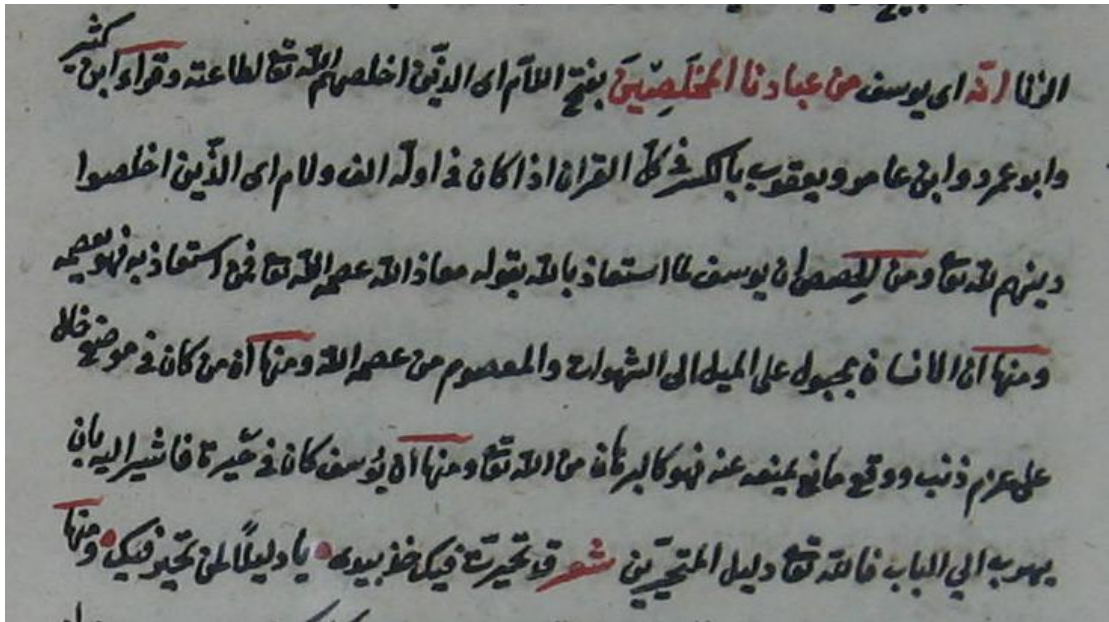 الزنا انه اى يوسف من عبادنا المخلَصِينَ بفتح اللام اى الذين اخلصهم الله تع لطاعته وقراء ابن كثير
وابو عمرو وابن عامر ويعقوب بالكسر فى كل القران اذا كان فى اوله الف ولام اى الذين اخلصوا
دينهم لله تع ومن الحصص ان يوسف لما استعاذ بالله بقوله معاذ الله عصمه الله تع فمن استعاذ به فهو يعصمه
ومنها ان الانسان مجبول على الميل الى الشهوات والمعصوم من عصمه الله ومنها ان من كان فى موضع خال
على عزم ذنب ووقع مانع يمنعه عنه فهو كالبرهان من الله تع ومنها ان يُوسف كان فى حَيرة فاشير اليه بان
يهرب الى الباب فالله تع دليل المتحيّرين شعر قد تحيرت فيك خذ بيدى يا دليلًا لمن تحير فيك ومنها